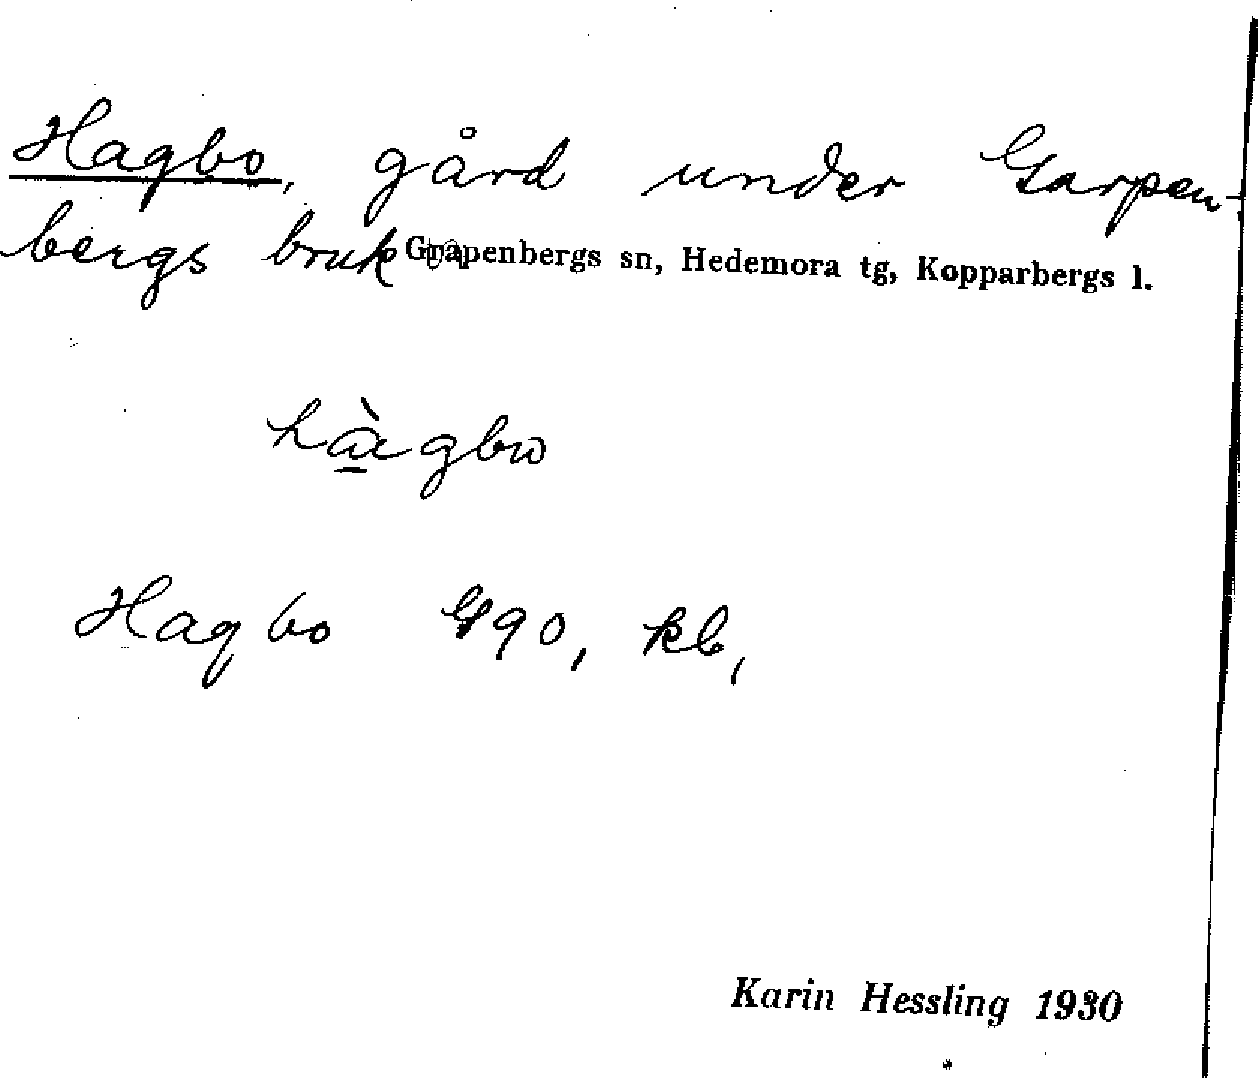 Hagbo, gård under Garpen-
bergs bruk Grapenbergs sn, Hedemora tg, Kopparbergs l.
hàgbω
Hagbo G90, kb,
Karin Hessling 1930